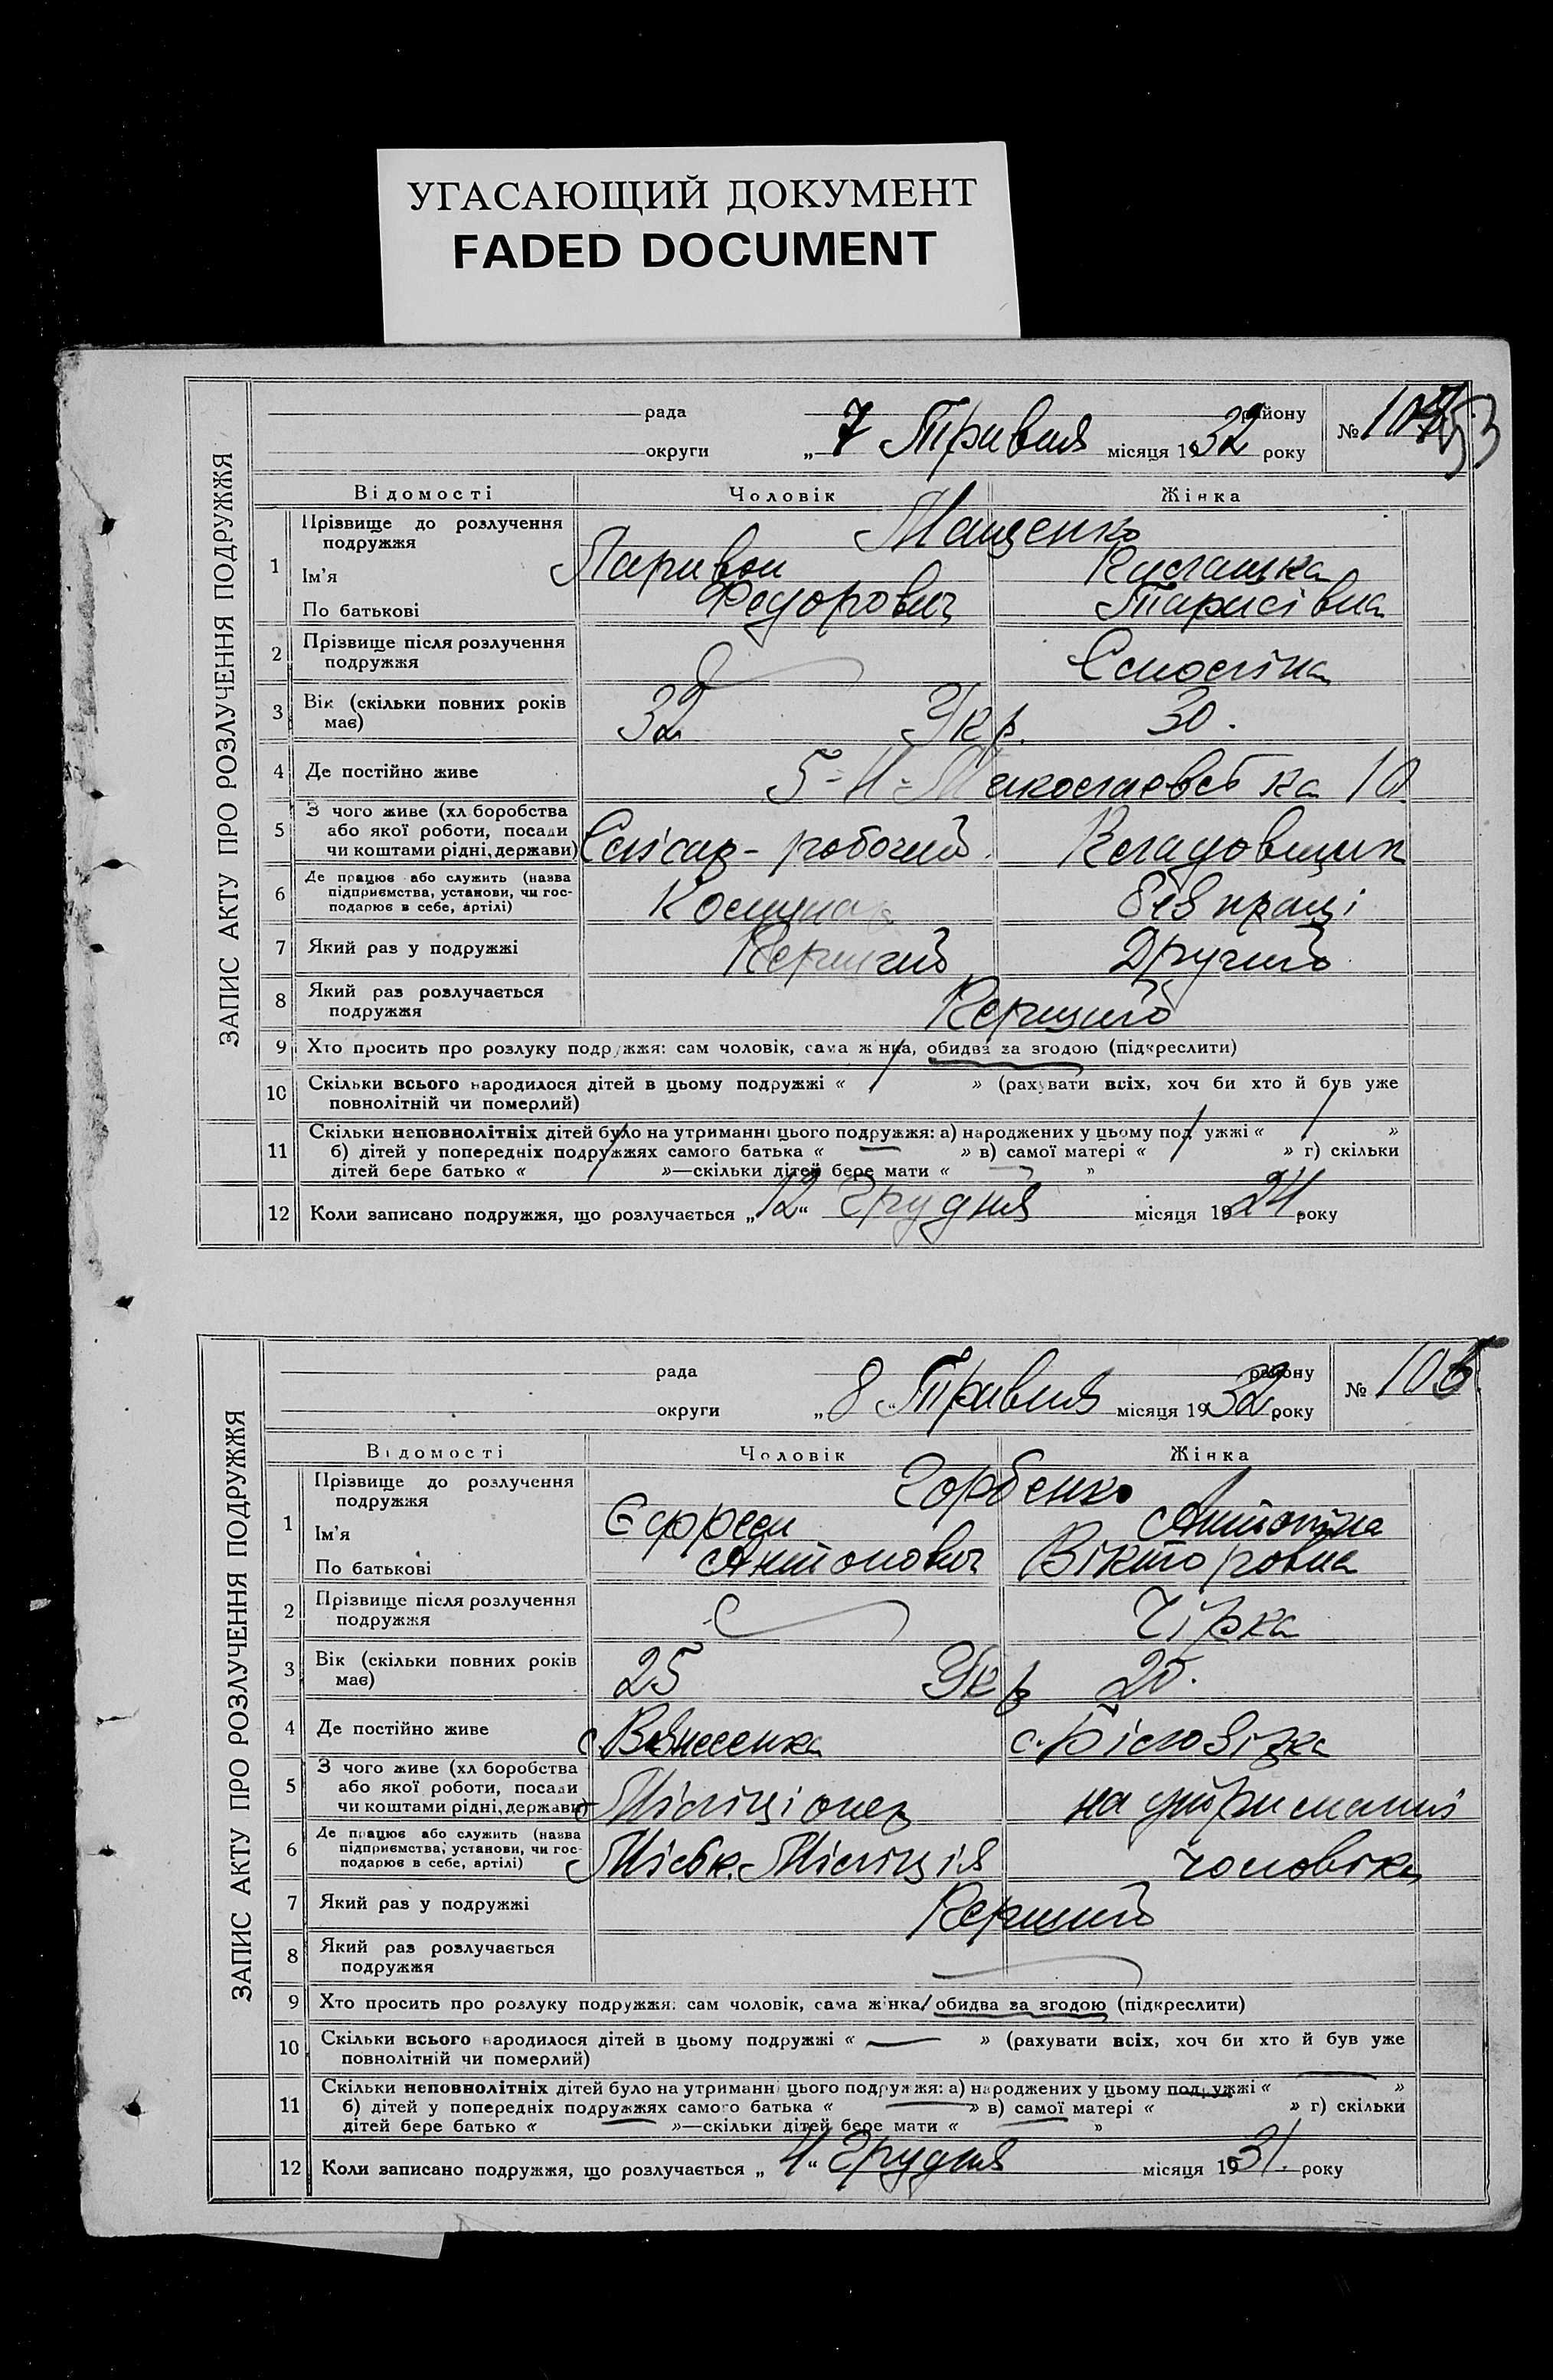 УГАСАЮЩИЙ ДОКУМЕНТ
FADED DOCUMENT
ЗАПИС АКТУ ПРО РОЗЛУЧЕННЯ ПОДРУЖЖЯ
рада району
округи „ 7 Травня місяця 1932 року
№ 53
Відомості Чоловік Жінка
1 Прізвище до розлучення подружжя Мащенко
Ім'я Ларивон
По батькові Федорович Тарисівна
2 Прізвище після розлучення
подружжя
3 Вік (скільки повних років
має) 32 Укр. 30.
4 Де постійно живе 10
5 З чого живе (хлборобства
або якої роботи, посади
чи коштами рідні, держави) Слісар - робочий Кладовщик
6 Де працює або служить (назва
підприємства, установи, чи гос-
подарює в себе, артілі) Комунар без праці
7 Який раз у подружжі Перший Другий
8 Який раз розлучається
подружжя Перший
9 Хто просить про розлуку подружжя: сам чоловік, сама жінка, обидва за згодою (підкреслити)
10 Скільки всього народилося дітей в цьому подружжі « » (рахувати всіх, хоч би хто й був уже
повнолітній чи померлий)
11 Скільки неповнолітніх дітей було на утриманні цього подружжя: а) народжених у цьому подружжі « »
б) дітей у попередніх подружжях самого батька « » в) самої матері « » г) скільки
дітей бере батько « »—скільки дітей бере мати « »
12 Коли записано подружжя, що розлучається „12“ Грудня місяця 1924 року
ЗАПИС АКТУ ПРО РОЗЛУЧЕННЯ ПОДРУЖЖЯ
рада району
округи „ 8 Травня місяця 1932 року
№ 105
Відомості Чоловік Жінка
1 Прізвище до розлучення
подружжя Горбенко
Ім'я Єфрем Антоніна
По батькові Антонович Вікторовна
2 Прізвище після розлучення
подружжя Чірка
3 Вік (скільки повних років
має) 25 Укр 20.
4 Де постійно живе с. Вознесенка с.
5 З чого живе (хлборобства
або якої роботи, посади
чи коштами рідні, держави) Міліціонер на утриманні
6 Де працює або служить (назва
підприємства, установи, чи гос-
подарює в себе, артілі) Міськ. Міліція чоловіка
7 Який раз у подружжі Перший
8 Який раз розлучається
подружжя
9 Хто просить про розлуку подружжя: сам чоловік, сама жінка, обидва за згодою (підкреслити)
10 Скільки всього народилося дітей в цьому подружжі « — » (рахувати всіх, хоч би хто й був уже
повнолітній чи померлий)
11 Скільки неповнолітніх дітей було на утриманні цього подружжя: а) народжених у цьому подружжі « »
б) дітей у попередніх подружжях самого батька « » в) самої матері « » г) скільки
дітей бере батько « »—скільки дітей бере мати « »
12 Коли записано подружжя, що розлучається „ 4 “ Грудня місяця 1931. року